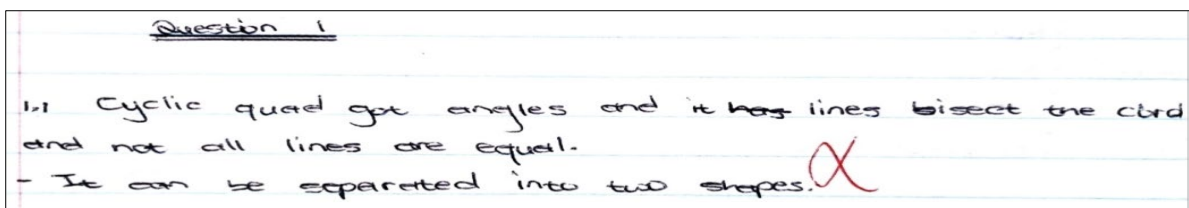 Question 1
1.1 Cyclic quad got angles and it has lines bisect the cord
and not all lines are equal.
- It can be seperated into two shapes.